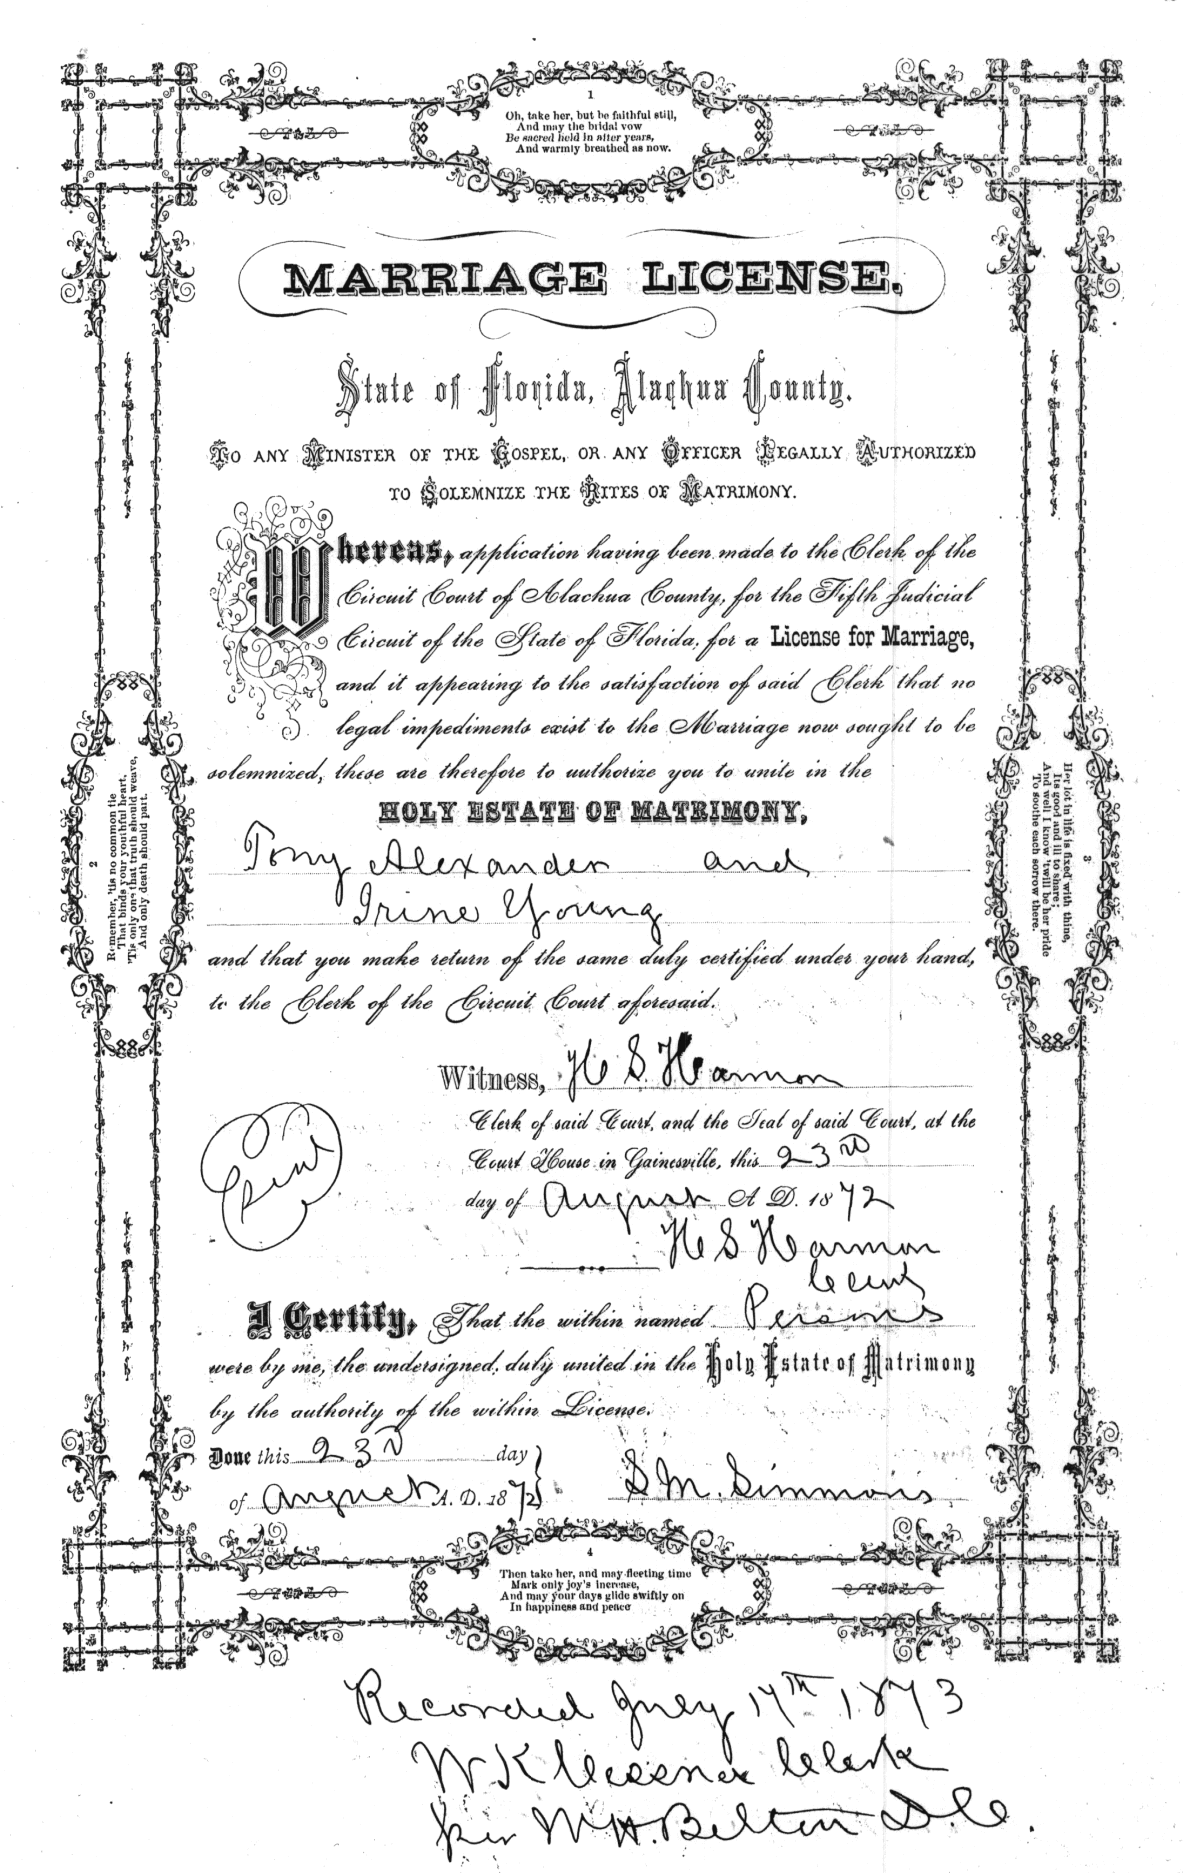 1
Oh, take her, but be faithful still,
And may the bridal vow
Be sacred held in after years,
And warmly breathed as now.
MARRIAGE LICENSE.
State of Florida, Alachua County.
TO ANY MINISTER OF THE GOSPEL, OR ANY OFFICER LEGALLY AUTHORIZED
TO SOLEMNIZE THE RITES OF MATRIMONY.
Whereas, application having been made to the Clerk of the
Circuit Court of Alachua County, for the Fifth Judicial
Circuit of the State of Florida, for a License for Marriage,
and it appearing to the satisfaction of said Clerk that no
legal impediments exist to the Marriage now sought to be
solemnized, these are therefore to authorize you to unite in the
HOLY ESTATE OF MATRIMONY,
Tony Alexander and
Irine Young
and that you make return of the same duly certified under your hand,
to the Clerk of the Circuit Court aforesaid.
2
Remember, 'tis no common tie
That binds your youthful heart,
'Tis only one that truth should weave,
And only death should part.
3
Her lot in life is fixed with thine,
Its good and ill to share;
And well I know 'twill be her pride
To soothe each sorrow there.
Witness, H S. Harmon
Clerk of said Court, and the Seal of said Court, at the
Court House in Gainesville, this 23rd
day of August A D. 1872
H S Harmon
Clerk
I Certify, That the within named Persons
were by me, the undersigned, duly united in the Holy Estate of Matrimony
by the authority of the within License.
Done this 23d day
of August A. D. 1872
S M. Simmons
4
Then take her, and may fleeting time
Mark only joy's increase,
And may your days glide swiftly on
In happiness and peace
Recorded July 17th 1873
W K Clerk
per W H. Belton D. C.